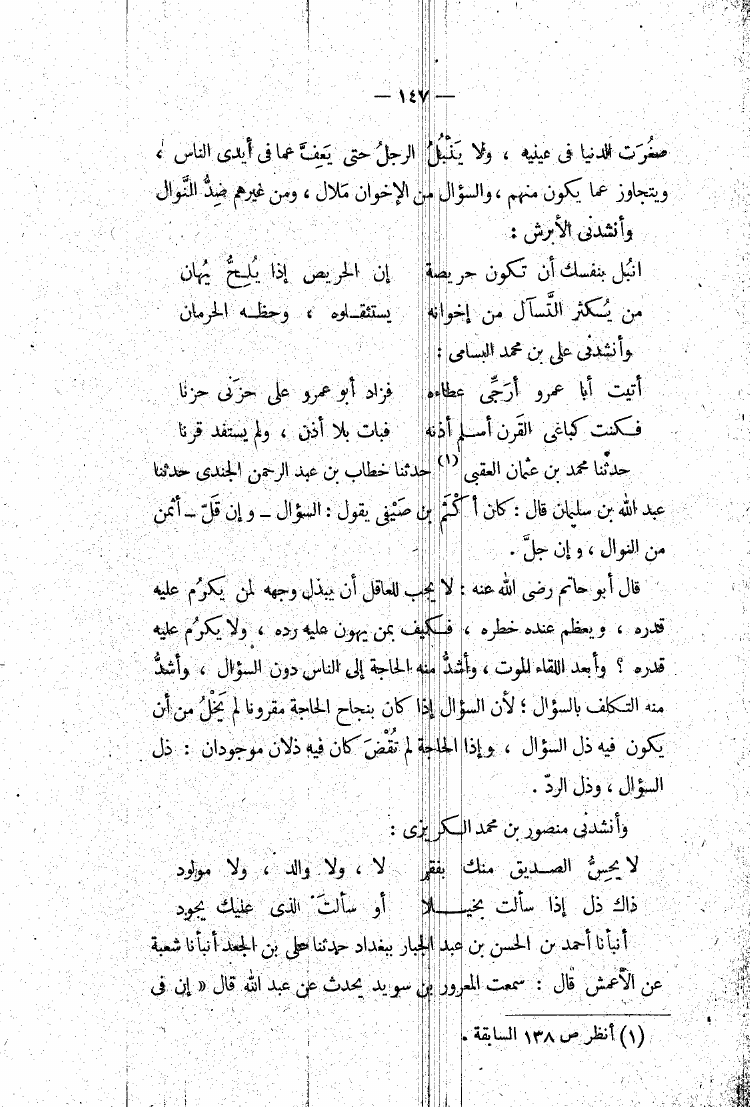 — ١٤٧ —
صغُرَت الدنيا فى عينيه ، ولا يَنْبُلُ الرجلُ حتى يَعِفَّ عما فى أيدى الناس ،
ويتجاوز عما يكون منهم ، والسؤال من الإخوان مَلال ، ومن غيرهم ضِدُّ النَّوال
وأنشدنى الأبرش :
انبُل بنفسك أن تكون حريصة إن الحريص إذا يُلحُّ يُهان
من يُكثر التَّسآل من إخوانه يستثقلوه ، وحظه الحرمان
وأنشدنى على بن محمد البسامى :
أتيت أبا عمرو أرَجِّى عطاءه فزاد أبو عمرو على حزَنى حزنا
فكنت كباغى القَرن أسلم أذنه فبات بلا أذن ، ولم يستفد قرنا
حدثنا محمد بن عثمان العقبى (١) حدثنا خطاب بن عبد الرحمن الجندى حدثنا
عبد الله بن سليمان قال : كان أكْثَم بن صَيْفى يقول : السؤال ــ وإن قلّ ــ أثمن
من النوال ، وإن جلَّ .
قال أبو حاتم رضى الله عنه : لا يجب للعاقل أن يبذل وجهه لمن يكرُم عليه
قدره ، ويعظم عنده خطره ، فكيف بمن يهون عليه رده ، ولا يكرُم عليه
قدره ؟ وأبعد اللقاء الموت ، وأشدُّ منه الحاجة إلى الناس دون السؤال ، وأشدُّ
منه التكلف بالسؤال ؛ لأن السؤال إذا كان بنجاح الحاجة مقرونا لم يَخْلُ من أن
يكون فيه ذل السؤال ، وإذا الحاجة لم تُقْضَ كان فيه ذلان موجودان : ذل
السؤال ، وذل الردّ .
وأنشدنى منصور بن محمد الكريزى :
لا يحِسُّ الصديق منك بفقر لا ، ولا والد ، ولا مولود
ذاك ذل إذا سألت بخيلا أو سألتَ الذى عليك يجود
أنبأنا أحمد بن الحسن بن عبد الجبار ببغداد حدثنا على بن الجعد أنبأنا شعبة
عن الأعمش قال : سمعت المعرور بن سويد يحدث عن عبد الله قال « إن فى
(١) أنظر ص ١٣٨ السابقة .